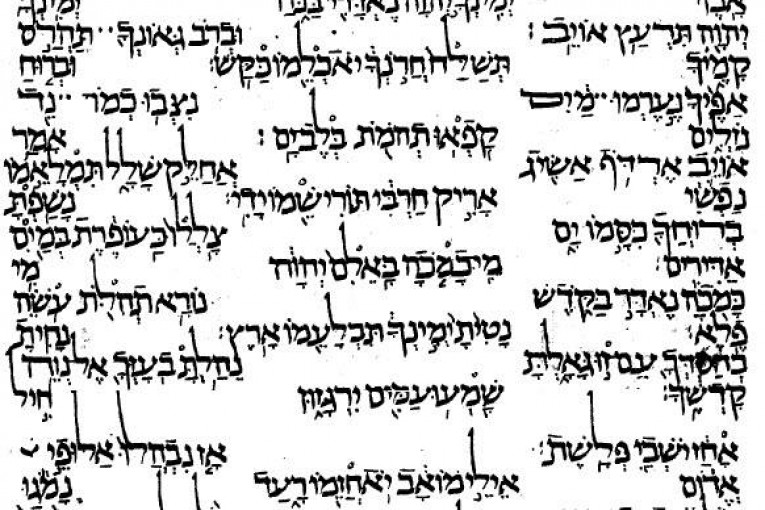 יְמִינְךָ יְהוָה נֶאְדָּרִי בַּכֹּחַ יְמִינְךָ
יְהוָה תִּרְעַץ אוֹיֵב׃ וּבְרֹב גְּאוֹנְךָ תַּהֲרֹס
קָמֶיךָ תְּשַׁלַּח חֲרֹנְךָ יֹאכְלֵמוֹ כַּקַּשׁ׃ וּבְרוּחַ
אַפֶּיךָ נֶעֶרְמוּ מַיִם נִצְּבוּ כְמוֹ נֵד
נֹזְלִים קָפְאוּ תְהֹמֹת בְּלֶב יָם׃ אָמַר
אוֹיֵב אֶרְדֹּף אַשִּׂיג אֲחַלֵּק שָׁלָל תִּמְלָאֵמוֹ
נַפְשִׁי אָרִיק חַרְבִּי תּוֹרִישֵׁמוֹ יָדִי׃ נָשַׁפְתָּ
בְרוּחֲךָ כִּסָּמוֹ יָם צָלֲלוּ כַּעוֹפֶרֶת בְּמַיִם
אַדִּירִים׃ מִי כָמֹכָה בָּאֵלִם יְהוָה מִי
כָּמֹכָה נֶאְדָּר בַּקֹּדֶשׁ נוֹרָא תְהִלֹּת עֹשֵׂה
פֶלֶא׃ נָטִיתָ יְמִינְךָ תִּבְלָעֵמוֹ אָרֶץ׃ נָחִיתָ
בְחַסְדְּךָ עַם זוּ גָּאָלְתָּ נֵהַלְתָּ בְעָזְּךָ אֶל נְוֵה
קָדְשֶׁךָ׃ שָׁמְעוּ עַמִּים יִרְגָּזוּן חִיל
אָחַז יֹשְׁבֵי פְּלָשֶׁת׃ אָז נִבְהֲלוּ אַלּוּפֵי
אֱדוֹם אֵילֵי מוֹאָב יֹאחֲזֵמוֹ רָעַד נָמֹגוּ